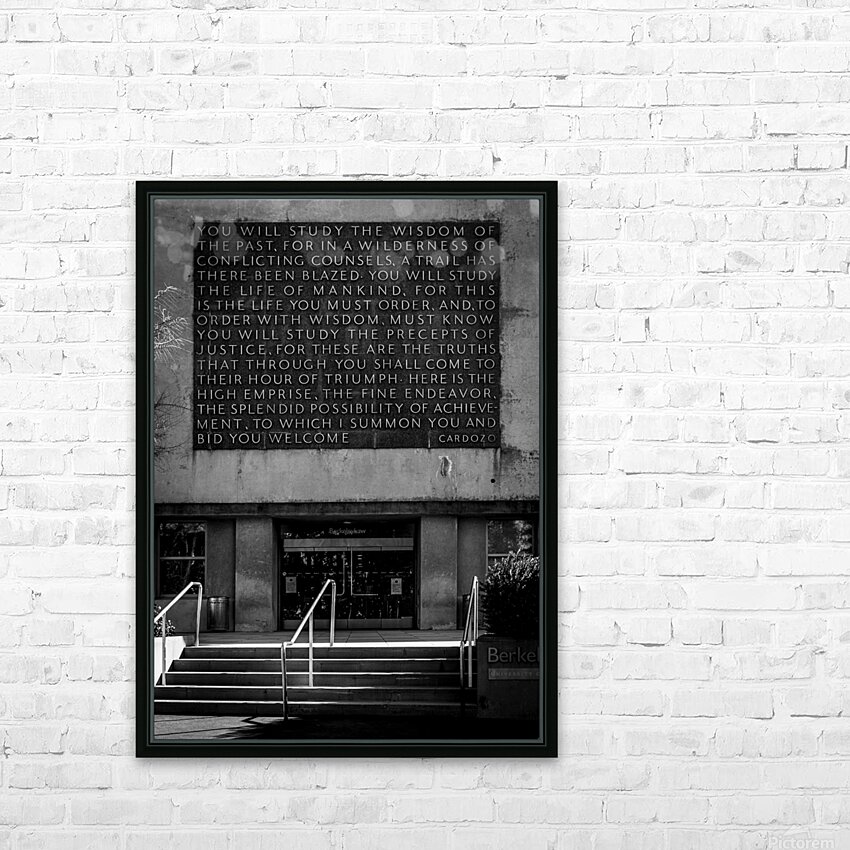 YOU WILL STUDY THE WISDOM OF
THE PAST, FOR IN A WILDERNESS OF
CONFLICTING COUNSELS, A TRAIL HAS
THERE BEEN BLAZED· YOU WILL STUDY
THE LIFE OF MANKIND, FOR THIS
IS THE LIFE YOU MUST ORDER, AND, TO
ORDER WITH WISDOM, MUST KNOW
YOU WILL STUDY THE PRECEPTS OF
JUSTICE, FOR THESE ARE THE TRUTHS
THAT THROUGH YOU SHALL COME TO
THEIR HOUR OF TRIUMPH· HERE IS THE
HIGH EMPRISE, THE FINE ENDEAVOR,
THE SPLENDID POSSIBILITY OF ACHIEVE-
MENT, TO WHICH I SUMMON YOU AND
BID YOU WELCOME CARDOZO
BerkeleyLaw
Berkel
UNIVERSITY
Pictorem